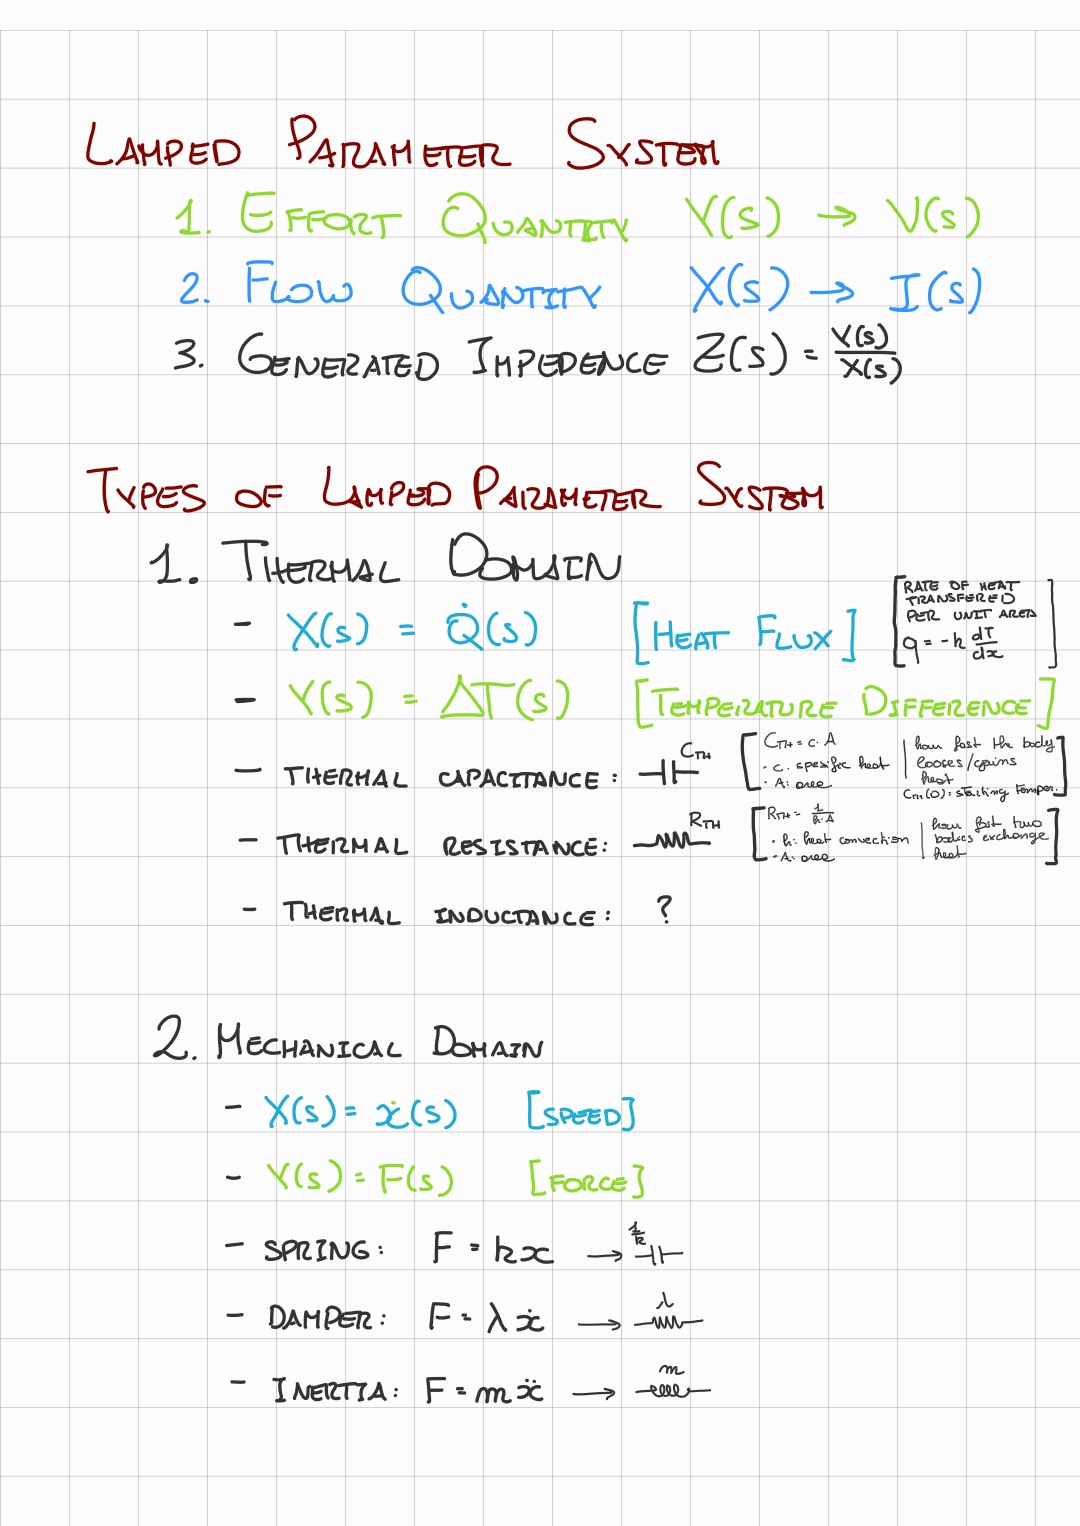 LAMPED PARAMETER SYSTEM
1. EFFORT QUANTITY Y(s) → V(s)
2. FLOW QUANTITY X(s) → I(s)
3. GENERATED IMPEDENCE Z(s) = Y(s)/X(s)
TYPES OF LAMPED PARAMETER SYSTEM
1. THERMAL DOMAIN
- X(s) = Q̇(s) [HEAT FLUX]
RATE OF HEAT
TRANSFERED
PER UNIT AREA
q = -k dT/dx
- Y(s) = ΔT(s) [TEMPERATURE DIFFERENCE]
- THERMAL CAPACITANCE: C_TH
C_TH = c · A
· c: spesific heat
· A: area
how fast the body
looses/gains
heat
C_TH(0): starting temper.
- THERMAL RESISTANCE: R_TH
R_TH = 1/(h·A)
· h: heat convection
· A: area
how fast two
bodies exchange
heat
- THERMAL INDUCTANCE: ?
2. MECHANICAL DOMAIN
- X(s) = ẋ(s) [SPEED]
- Y(s) = F(s) [FORCE]
- SPRING: F = kx → 1/k
- DAMPER: F = λẋ → λ
- INERTIA: F = mẍ → m